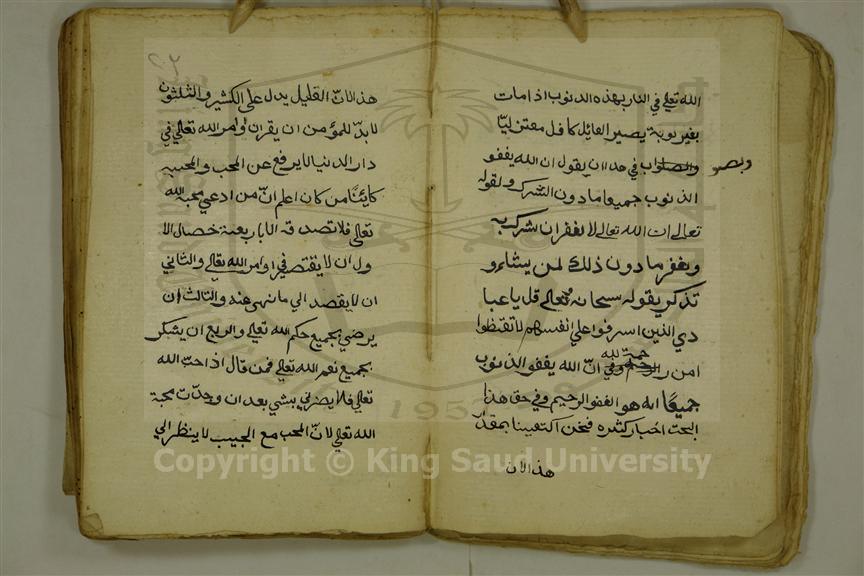 الله تعالى في النار بهذه الذنوب اذا مات
بغير توبة يصير القائل كافل معتزليّا
وبصو والصلواب في حدا ان يقول ان الله يغفو
الذنوب جميعا مادون الشرك ولقوله
تعالى ان الله تعالى لا يغفر ان شرك به
ويغفر مادون ذلك لمن يشاء و
تذكر بقوله سبحانه وتعالى قل يا عبا
دي الذين اسرفوا علي انفسهم لا تقنطوا
من رحمة الله انّ الله يغفو الذنوب
جميعًا انه هو الغفو الرحيم وفي حق هذا
البحث اخبار كثيره فنحن اكتفينا بمقدّ
هذا لان
هذا لانّ القليل يدل على الكثير والثلثون
لا بدّ للمؤمن ان يقر ان اوامر الله تعالى في
دار الدنيا لا يرفع عن المحب والمحبيه
كايئنًا من كان اعلم انّ من ادعي محبة الله
تعالى فلا تصدقه الا باربعة خصال الا
ول ان لا يقتصر في اوامر الله تعالى والثاني
ان لا يقصد الي ما نهى عنه والثالث ان
يرضي بجميع حكم الله تعالى والربع ان يشكر
بجميع نعم الله تعالى فمن قال اذا حبّ الله
تعالى فلا يضرني بشي بعد ان وجدّت محبة
الله تعالى لانّ المحب مع الجبيب لا ينظر الي
Copyright © King Saud University
1957